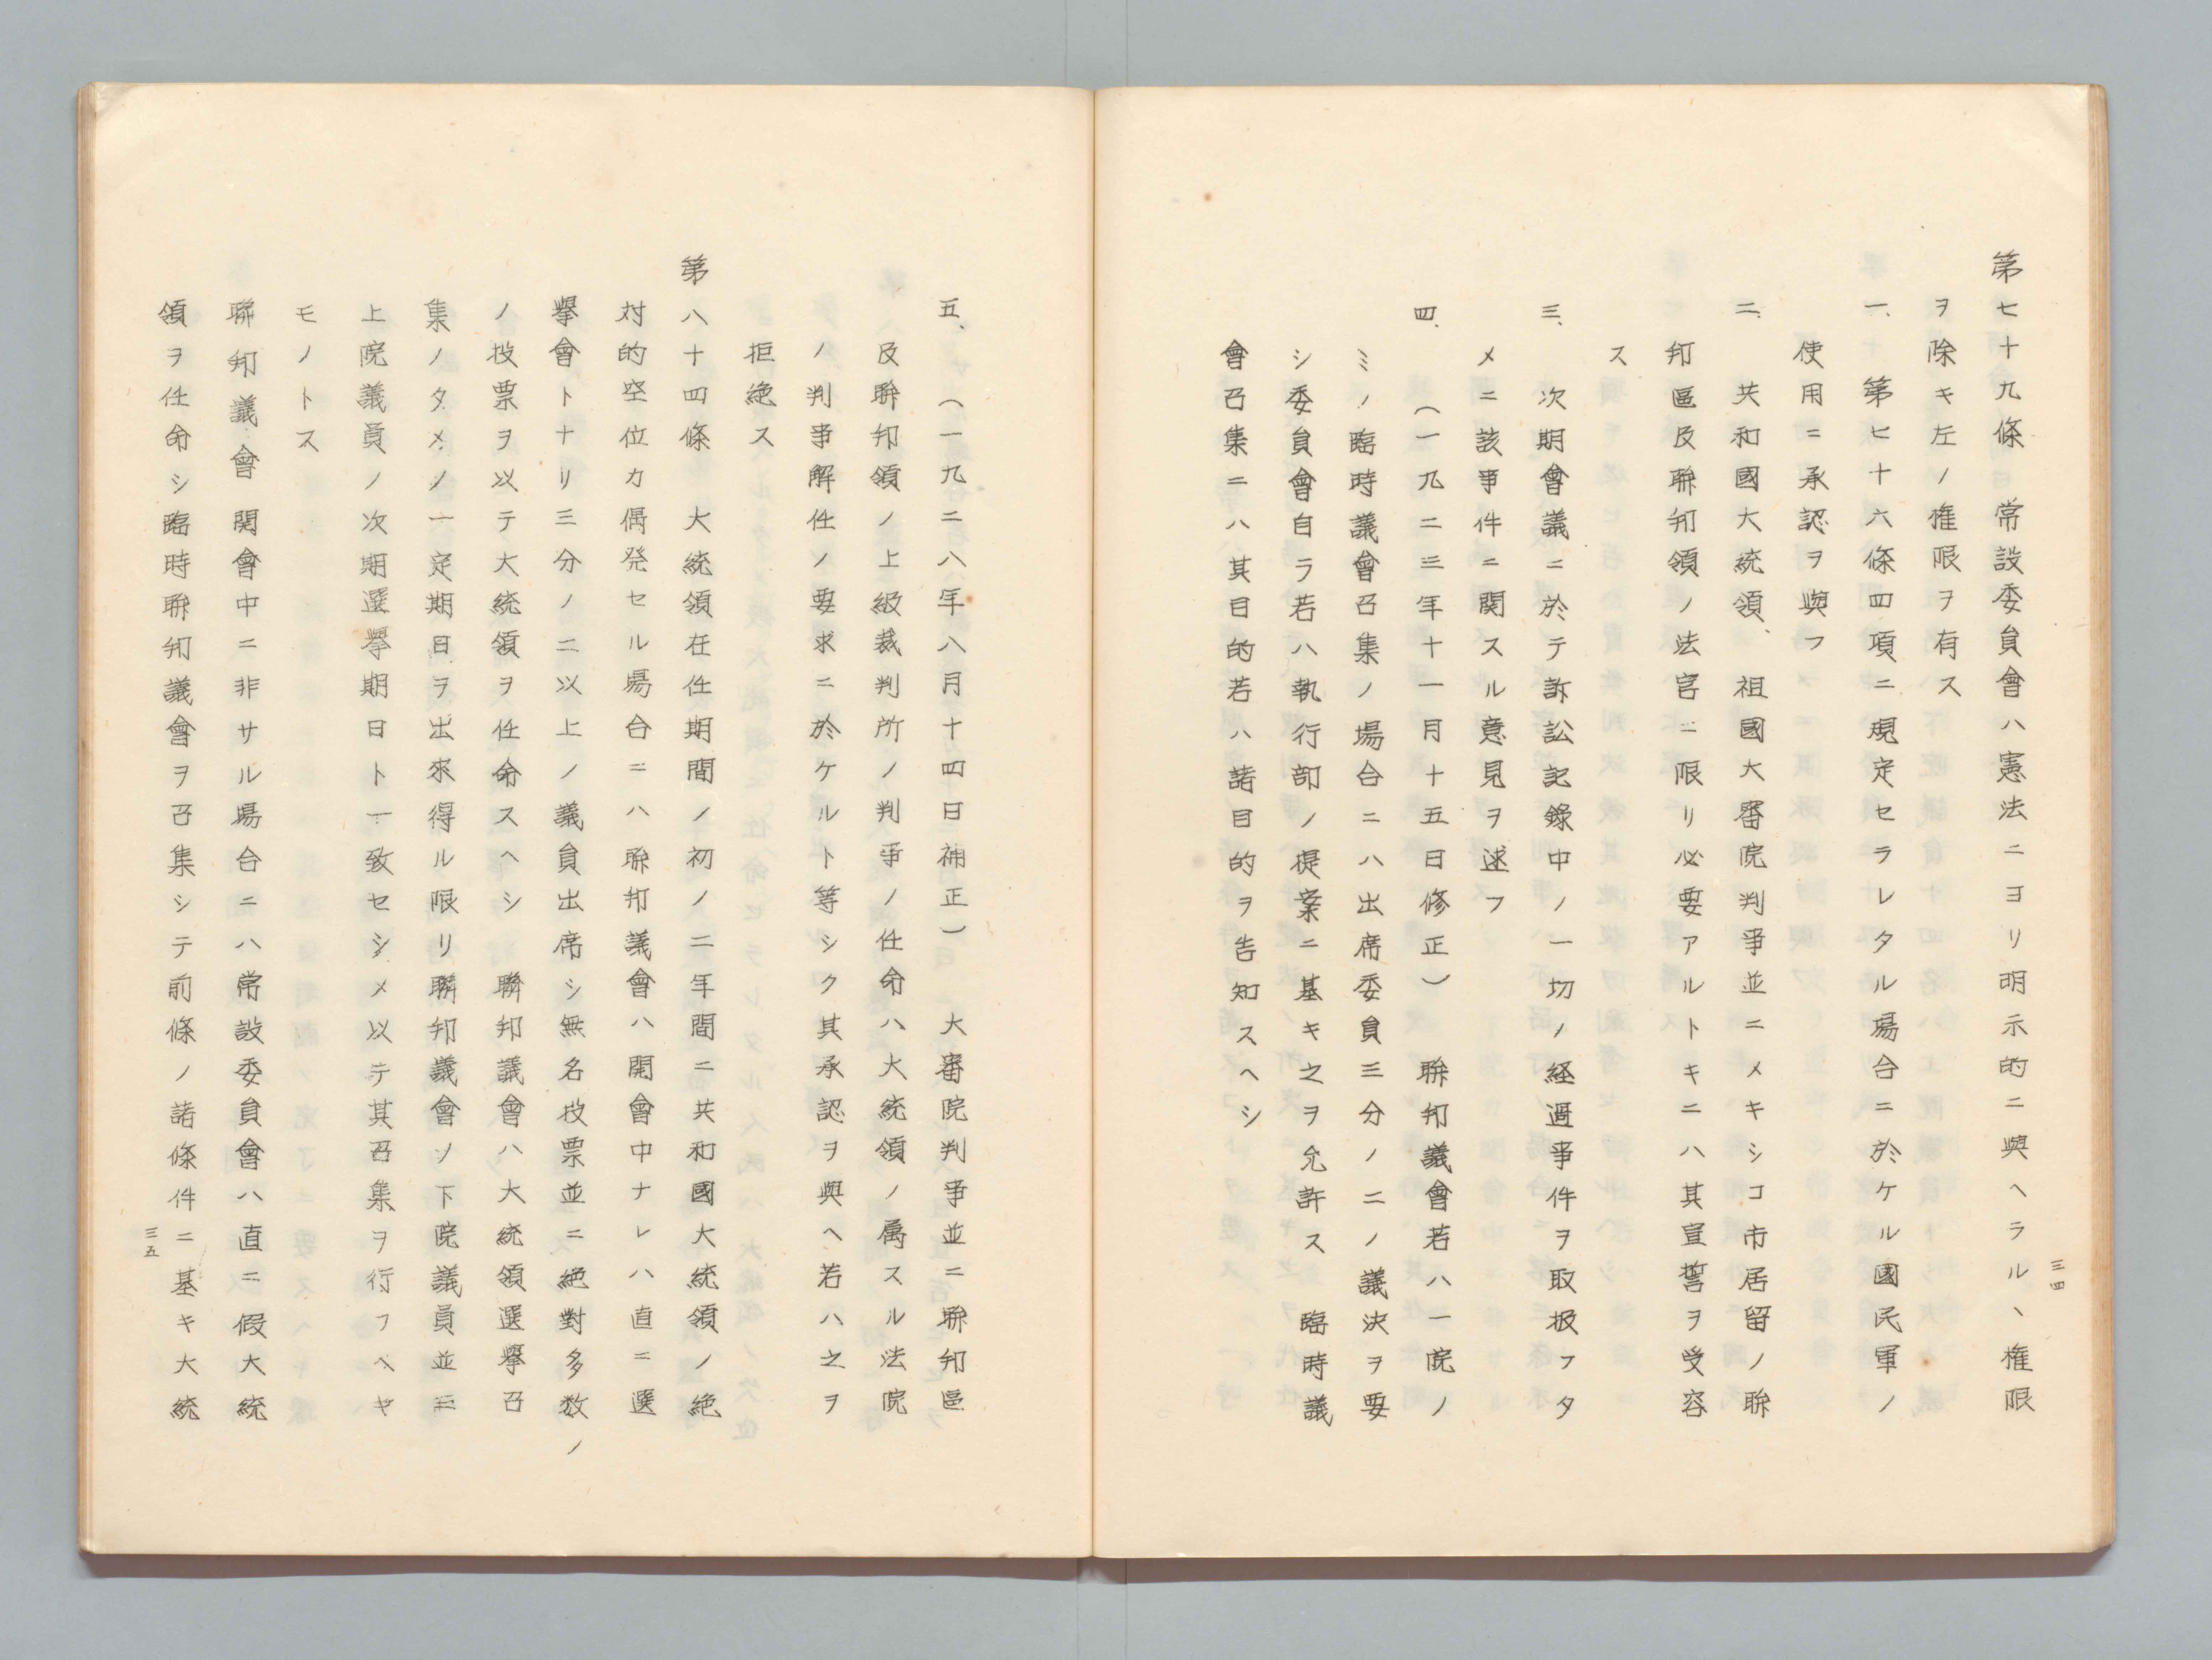 三四
第七十九條　常設委員會ハ憲法ニヨリ明示的ニ與ヘラルヽ権限
ヲ除キ左ノ権限ヲ有ス
一、第七十六條四項ニ規定セラレタル場合ニ於ケル國民軍ノ
使用ニ承認ヲ與フ
二、共和國大統領、祖國大審院判事並ニメキシコ市居留ノ聯
邦區及聯邦領ノ法官ニ限リ必要アルトキニハ其宣誓ヲ受容
ス
三、次期會議ニ於テ訴訟記錄中ノ一切ノ経過事件ヲ取扱フタ
メニ該事件ニ関スル意見ヲ述フ
四、（一九二三年十一月十五日修正）　聯邦議會若ハ一院ノ
ミノ臨時議會召集ノ場合ニハ出席委員三分ノ二ノ議決ヲ要
シ委員會自ラ若ハ執行部ノ提案ニ基キ之ヲ允許ス　臨時議
會召集ニハ其目的若ハ諸目的ヲ告知スヘシ
五、（一九二八年八月十四日補正）　大審院判事並ニ聯邦區
及聯邦領ノ上級裁判所ノ判事ノ任命ハ大統領ノ属スル法院
ノ判事解任ノ要求ニ於ケルト等シク其承認ヲ與ヘ若ハ之ヲ
拒絶ス
第八十四條　大統領在任期間ノ初ノ二年間ニ共和國大統領ノ絶
対的空位カ偶発セル場合ニハ聯邦議會ハ開會中ナレハ直ニ選
擧會トナリ三分ノ二以上ノ議員出席シ無名投票並ニ絶對多数ノ
ノ投票ヲ以テ大統領ヲ任命スヘシ　聯邦議會ハ大統領選擧召
集ノタメノ一定期日ヲ出來得ル限リ聯邦議會ソノ下院議員並ニ
上院議員ノ次期選擧期日ト一致セシメ以テ其召集ヲ行フヘキ
モノトス
聯邦議會開會中ニ非サル場合ニハ常設委員會ハ直ニ假大統
領ヲ任命シ臨時聯邦議會ヲ召集シテ前條ノ諸條件ニ基キ大統
三五